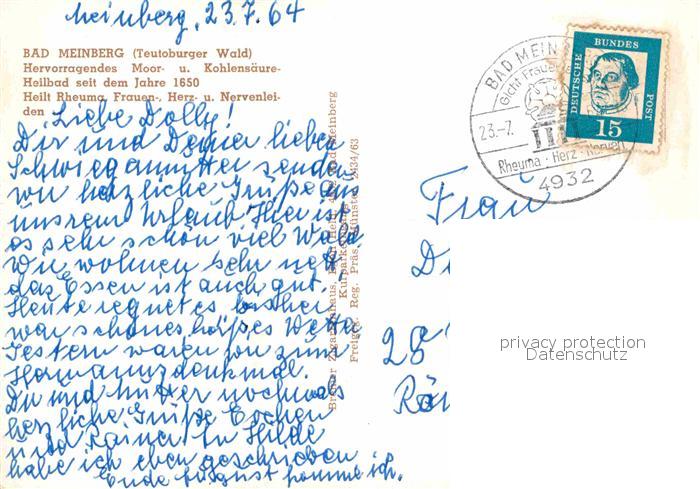 Meinberg, 23.7.64
BAD MEINBERG (Teutoburger Wald)
Hervorragendes Moor- u. Kohlensäure-
Heilbad seit dem Jahre 1650
Heilt Rheuma, Frauen-, Herz- u. Nervenlei-
den
Liebe Dolly!
Dir und Deiner lieben
Schwiegermutter senden
wir herzliche Grüße aus
unsrem Urlaub Hier ist
es sehr schön viel Wald
Wir wohnen sehr nett
das Essen ist auch gut.
Heute regnet es bisher
war schönes heißes Wetter
Gestern waren wir zum
Hermannsdenkmal.
Dir und Mutter nochmals
herzliche Grüße
und Rainer In Hilde
habe ich eben geschrieben
Ende August komme ich.
Kurparkeingang
Freigeg. Reg. Präs. Münster 2434/63
BAD MEINBERG
Gicht Frauen
23.-7.
Rheuma · Herz · Nerven
4932
DEUTSCHE
BUNDES
POST
15
Frau
28
privacy protection
Datenschutz